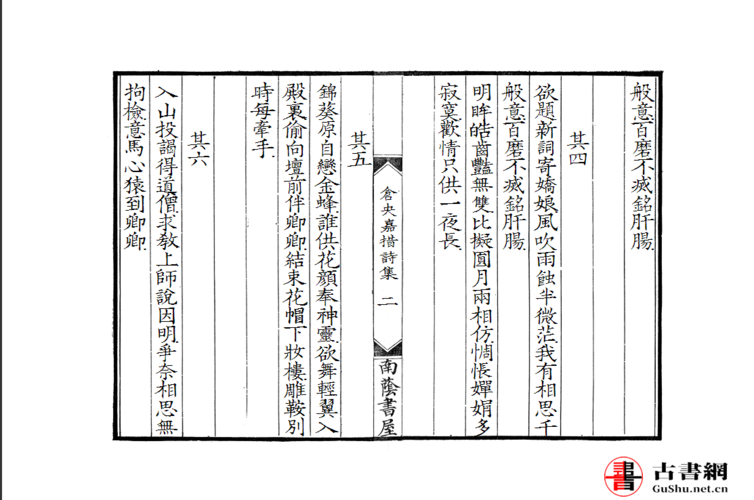 般意百磨不滅銘肝腸
其四
欲題新詞寄嬌娘風吹雨蝕半微茫我有相思千
般意百磨不滅銘肝腸
明眸皓齒豔無雙比擬圓月兩相仿惆悵嬋娟多
寂寞歡情只供一夜長
倉央嘉措詩集 二
南蔭書屋
其五
錦葵原自戀金蜂誰供花顏奉神靈欲舞輕翼入
殿裏偷向壇前伴卿卿結束花帽下妝樓雕鞍別
時每牽手
其六
入山投謁得道僧求教上師說因明爭奈相思無
拘檢意馬心猿到卿卿
古書網
GuShu.net.cn